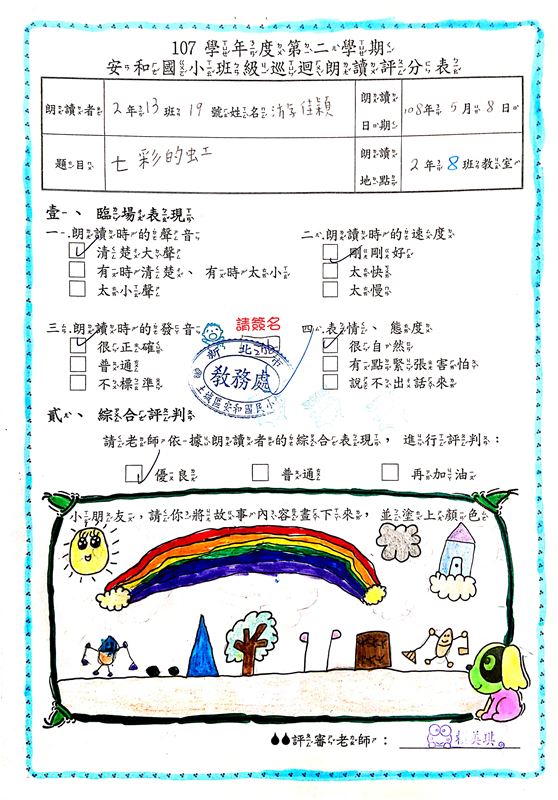 107 學年度第二學期
安和國小班級巡迴朗讀評分表
朗讀者 2年13班19號姓名 佳穎
朗讀日期 108年5月8日
題目 七彩的虹
朗讀地點 2年8班教室
壹、臨場表現
一、朗讀時的聲音
清楚大聲
有時清楚、有時太小
太小聲
二、朗讀時的速度
剛剛好
太快
太慢
三、朗讀時的發音
很正確
普通
不標準
請簽名
新北市
土城區安和國民小
教務處
四、表情、態度
很自然
有點緊張害怕
說不出話來
貳、綜合評判
請老師依據朗讀者的綜合表現,進行評判:
優良 普通 再加油
小朋友,請你將故事內容畫下來,並塗上顏色
評審老師: 美琪